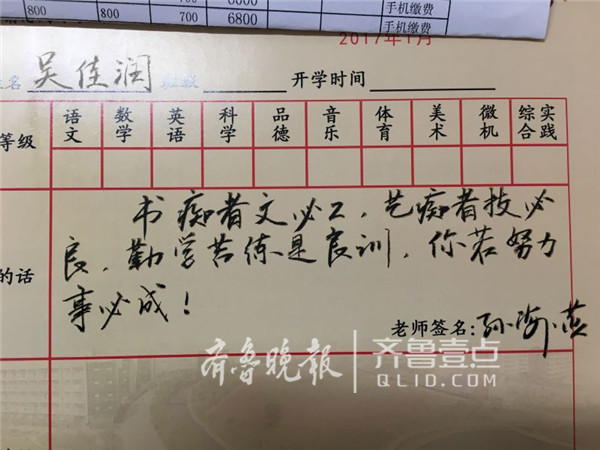 6000
手机缴费
800 800 700 6800
手机缴费
2017年1月
姓名 吴佳润 班级 开学时间
等级 语文 数学 英语 科学 品德 音乐 体育 美术 微机 综合实践
书痴者文必工，艺痴者技必
良，勤学苦练是良训，你若努力
的话
事必成！
老师签名：孙海燕
齐鲁晚报 齐鲁壹点
QLID.COM